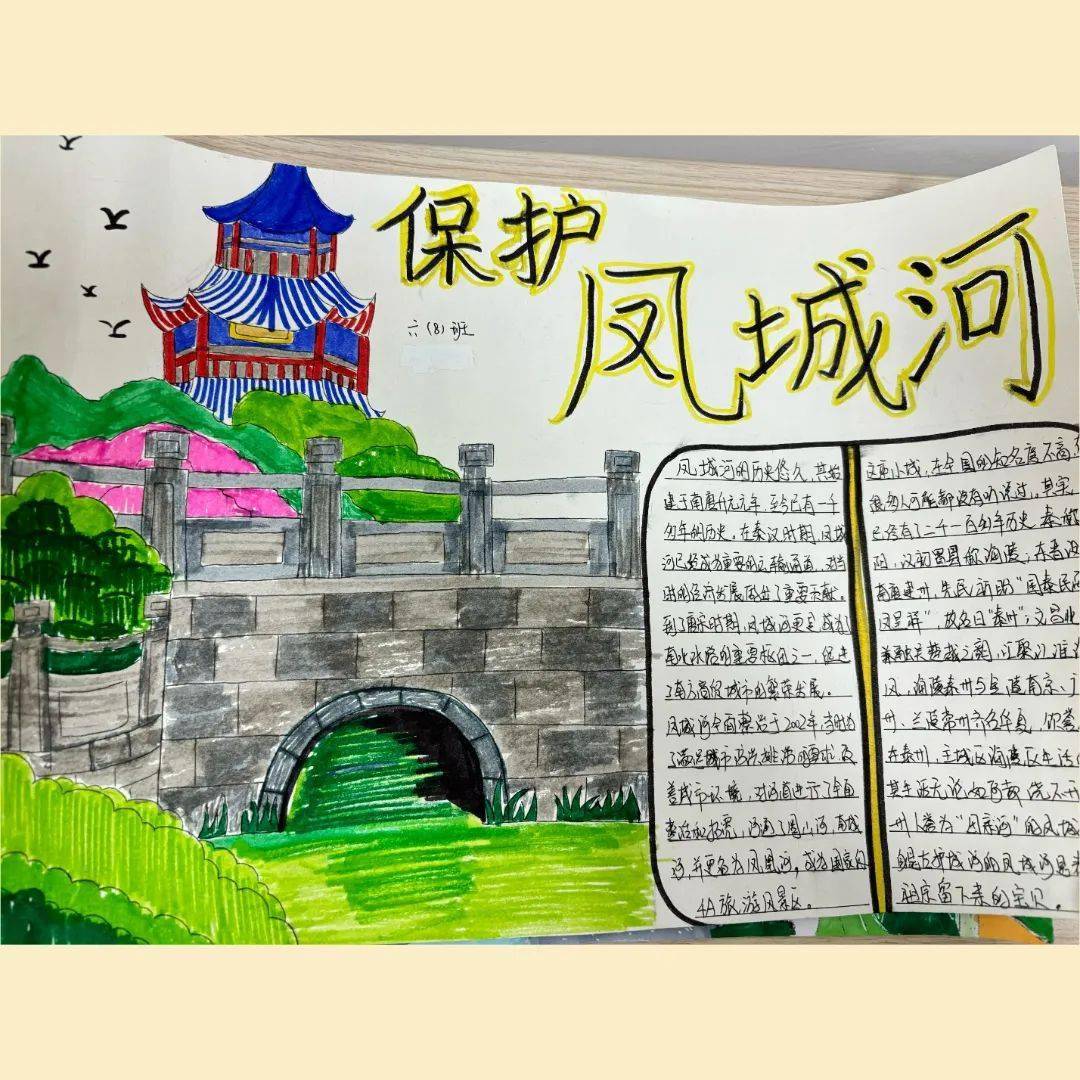 保护
凤城河
六(8)班
凤城河的历史悠久,其始
建于南唐升元元年,至今已有一千
多年的历史。在秦汉时期,凤城
河已经成为重要的运输通道,对当
时的经济发展做出了重要贡献。
到了唐宋时期,凤城河更是成为了
南北水路的重要枢纽之一,促进
了南方商贸城市的繁荣发展。
凤城河全面整治于2002年,当时为
了满足城市防洪排涝的需求及
善城市环境,对河道进行了全面
整治和拓宽,河通了周山河,南城
河,并更名为凤凰河,成为国家
4A旅游风景区。
这南小城,在全国的知名度不高,
很多人可能都没有听说过,其实
已经有了二千一百多年历史,秦称
阳,汉初置县称海陵;在
南唐建州,先民祈盼"国泰民
凤呈祥",故名曰"泰州";文昌北
兼融吴楚越之韵,汇聚江淮
凤,海陵泰州与金陵南京、
州、兰陵常州齐名华夏,饮誉
在泰州,主城区海陵区生活
其生活无论如何都绕不开
州人誉为"母亲河"的凤城
祖宗留下来的宝贝。